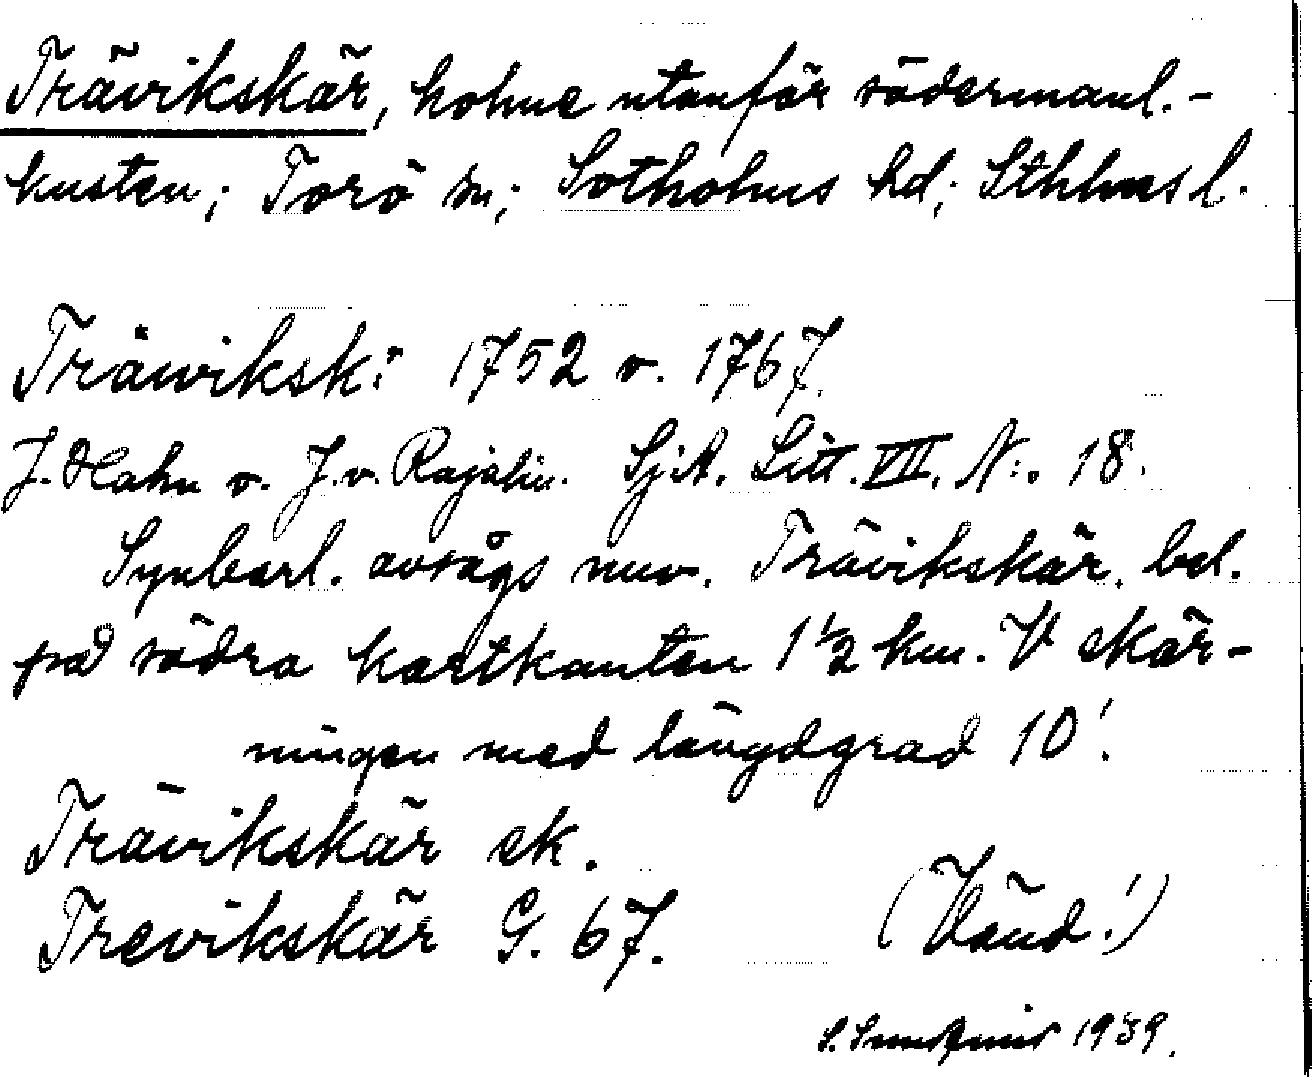 Trävikskär, holme utanför södermanl.-
kusten; Torö sn; Sotholms hd; Sthlms l.
Träwiksk: 1752 o. 1767.
J. Hahn o. J. v. Rajalin. SjA. Litt. VII. N:o 18.
Synbarl. avsågs nuv. Trävikskär, bel.
på södra kartkanten 1½ km. V skär-
ningen med längdgrad 10'.
Trävikskär ek.
Trevikskär G. 67.
(Vänd!)
S. 1939.